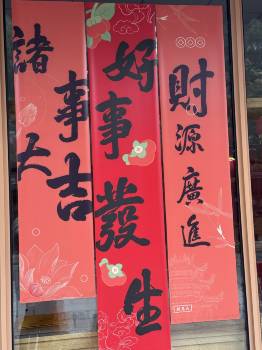 諸事大吉
好事發生
財源廣進